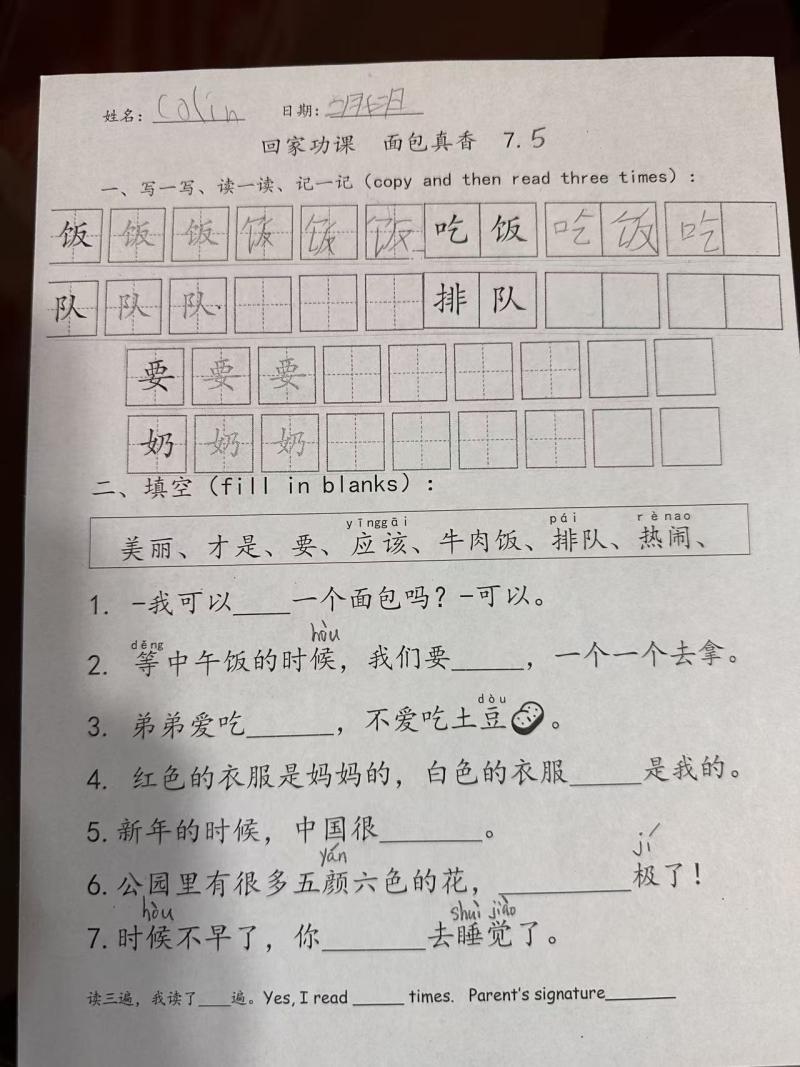 姓名: Colin 日期: 二月七日
回家功课 面包真香 7.5
一、写一写、读一读、记一记(copy and then read three times):
饭 饭 饭 饭 饭 饭 吃 饭 吃 饭 吃
队 队 队 排 队
要 要 要
奶 奶 奶
二、填空(fill in blanks):
yīnggāi pái rènao
美丽、才是、要、应该、牛肉饭、排队、热闹、
1. -我可以____一个面包吗?-可以。
děng hòu
2. 等中午饭的时候,我们要_____,一个一个去拿。
dòu
3. 弟弟爱吃______,不爱吃土豆。
4. 红色的衣服是妈妈的,白色的衣服_____是我的。
5. 新年的时候,中国很_______。
yán jí
6. 公园里有很多五颜六色的花,_________极了!
hòu shuì jiào
7. 时候不早了,你_______去睡觉了。
读三遍,我读了____遍。Yes, I read ______ times. Parent's signature________